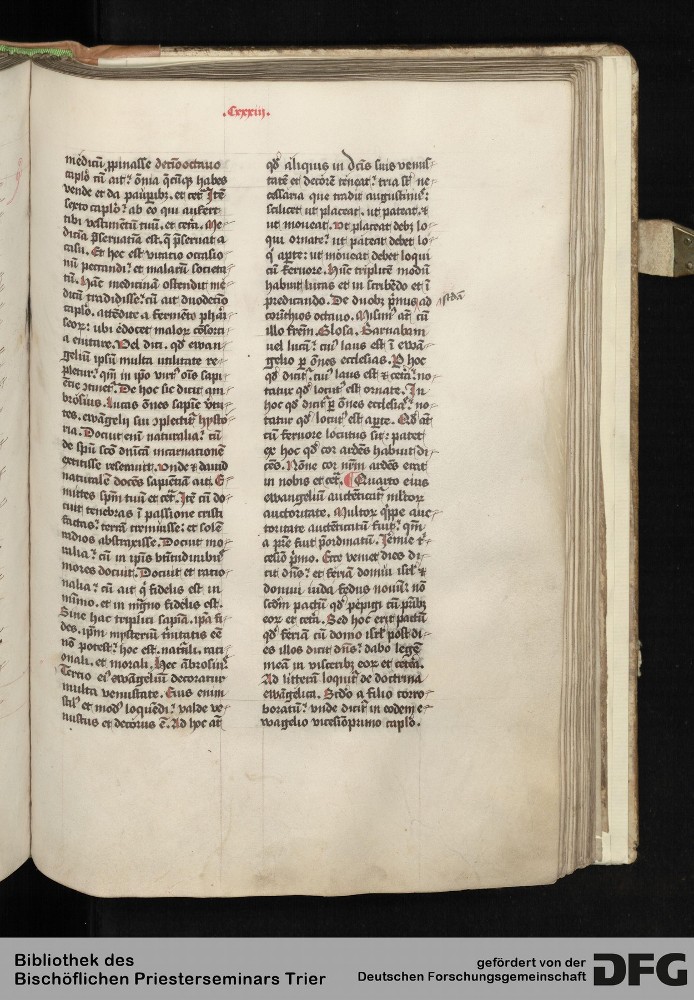 .Cxxxiij.
medicū ꝓpinasse decīooctauo
caplo cū ait? ōnia q̄cūq habes
vende et da paup̄ibꝫ. et cet̄. Itē
sexto caplo? ab eo qui aufert
tibi vestimentū tuū. et cet̄a. Me⸗
dicīa p̄seruatīa est. q̄ p̄seruat a
casu. Et hoc est vitatio occasio⸗
nū peccandi? et malarū societa⸗
tū. Hāc medicinā ostendit me⸗
dicū tradidisse? cū ait duodecīo
caplo. attēdite a fermēto phār̄
seoꝝ: ubi edocet maloꝝ cōsorti⸗
a euitare. Vel dici. qd̄ ewan⸗
geliū ipsū multa utilitate re⸗
pletur? qm̄ in ip̄o virtꝰ oīs sapi⸗
ētie ↄtinet̄. De hoc sic dicit am⸗
brosius. Lucas ōnes sapīe vtu⸗
tes. ewāgelij sui ↄplectit̄ hysto⸗
ria. Docuit enī naturalia? cū
de sp̄u sc̄o dn̄icā incarnationē
extitisse reserauit. Vnde ⁊ dauid
naturalē docēs sapiētiā ait. E⸗
mittes sp̄m tuū et cet̄. Itē cū do⸗
cuit tenebras ī passione cristi
factas? terrā tremuisse: et solē
radios abstraxisse. Docuit mo⸗
ralia? cū in ip̄is btitudinibꝰ
mores docuit. Docuit et ratio⸗
nalia? cū ait q̄ fidelis est in
mīmo. et in mg̅no fidelis est.
Sine hac triplici sapīa. ip̄a fi⸗
des. ip̄m mysteriū t̄nitatis eē
nō potest? hoc est. nat̄rli. rati⸗
onali. et morali. Hec ābrosiꝰ.
Tercio eiꝰ ewāgeliū decoratur
multa venustate. Eius enim
stilꝰ et modꝰ loquēdi? valde ve⸗
nustus et decorus ē. Ad hoc at̄
qd̄ aliquis in dc̄is suis venus⸗
tatē et decorē teneat? tria st̄ ne⸗
cessaria que tradit augustinꝰ:
scilicet ut placeat. ut pateat. ⁊
ut moueat. Vt placeat debꝫ lo⸗
qui ornate? ut pateat debet lo⸗
q̄ aꝑte: ut moueat debet loqui
cū feruore. Hūc triplicē modū
habuit lucas et in scribēdo et ī
predicando. De duobꝫ p̄mis ad
corīthios octauo. Misimꝰ at̄ cū
illo fr̄em. Glosa. Barnabam
uel lucā? cuiꝰ laus est ī ewā⸗
gelio ꝑ ōnes ecclesias. P hoc
qd̄ dicit̄. cuiꝰ laus est ⁊ cet̄a? no⸗
tatur qd̄ locutꝰ est ornate. In
hoc qd̄ dicit̄ ꝑ ōnes ecclesiaꝫ? no⸗
tatur qd̄ locutꝰ est aꝑte. Qd̄ at̄
cū feruore locutus sit: patet
ex hoc qd̄ cor ardēs habuit di⸗
cēs. Nōne cor nr̄m ardēs erat
in nobis et cet̄. ¶ Quarto eius
ewangeliū autēticat̄ mltoꝝ
auctoritate. Multoꝝ q̄ppe auc⸗
toritate autēticatū fuit? qm̄
a p̄re fuit p̄ordinatū. Iemie t̄⸗
cesīo p̄mo. Ecce veniet dies di⸗
cit dn̄s? et feriā domui isrl̄ ⁊
domui iuda fedus nouū? nō
scd̄m pactū qd̄ pepigi cū pr̄ibꝫ
eoꝝ et cet̄a. Sed hoc erit pactū
qd̄ feriā cū domo isrl̄ post di⸗
es illos dicit dn̄s? dabo legē
meā in visceribꝫ eoꝝ et cet̄a.
Ad litterā loquit̄ de doctrina
ewāgelica. Scd̄o a filio corro⸗
boratū? vnde dicit̄ in eodem e⸗
wagelio vicesīoprimo caplo.
Bibliothek des
Bischöflichen Priesterseminars Trier
gefördert von der
Deutschen Forschungsgemeinschaft
DFG